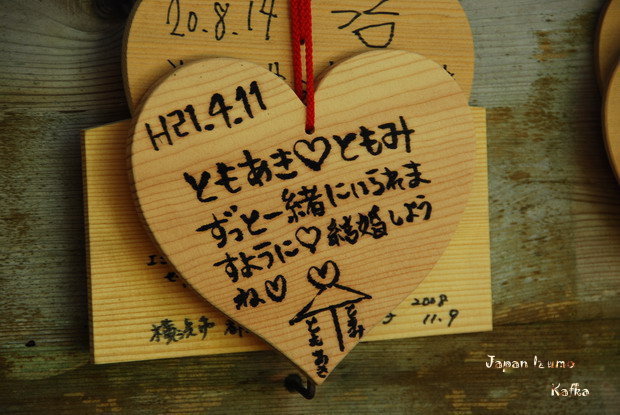 20.8.14
H21.4.11
ともあき♡ともみ
ずっと一緒にいられま
すように♡結婚しよう
ね♡
ともみ
ともあき
2008
11.9
Japan Izumo
Kafka